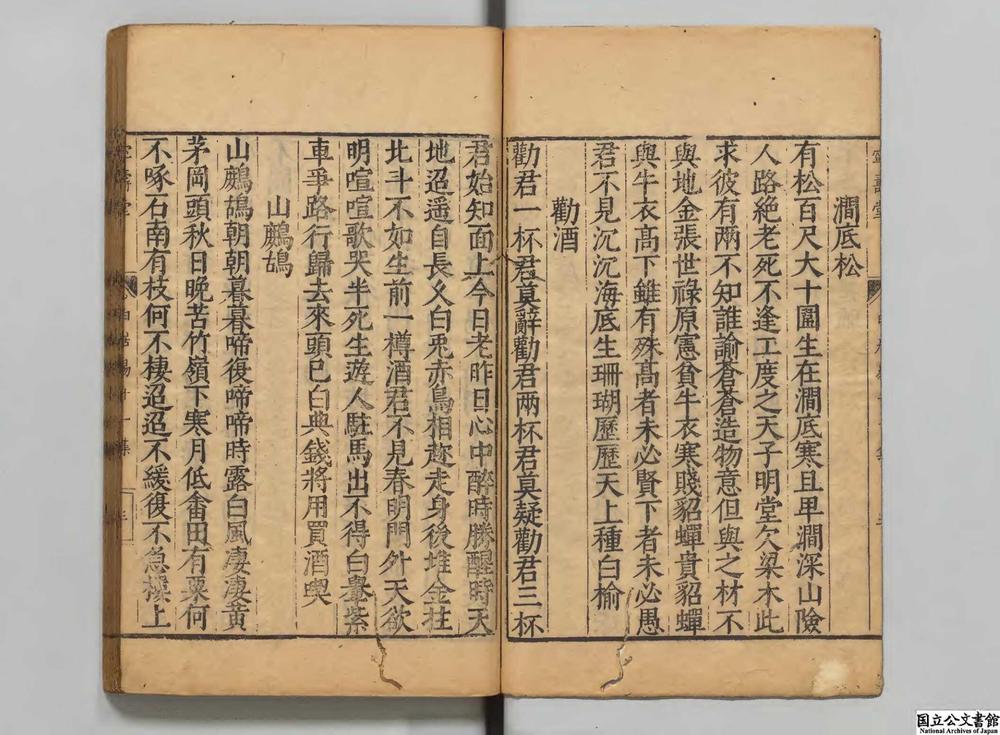 澗底松
有松百尺大十圍生在澗底寒且卑澗深山險
人路絕老死不逢工度之天子明堂欠梁木此
求彼有兩不知誰諭蒼蒼造物意但與之材不
與地金張世祿原憲貧牛衣寒賤貂蟬貴貂蟬
與牛衣高下雖有殊高者未必賢下者未必愚
君不見沉沉海底生珊瑚歷歷天上種白榆
勸酒
勸君一杯君莫辭勸君兩杯君莫疑勸君三杯
君始知面上今日老昨日心中醉時勝醒時天
地迢遥自長久白兎赤烏相趂走身後堆金拄
北斗不如生前一樽酒君不見春明門外天欲
明喧喧歌哭半死生遊人駐馬出不得白轝紫
車爭路行歸去來頭已白典錢將用買酒喫
山鷓鴣
山鷓鴣朝朝暮暮啼復啼啼時露白風凄凄黃
茅岡頭秋日晚苦竹嶺下寒月低畬田有粟何
不啄石南有枝何不棲迢迢不緩復不急樓上
国立公文書館
National Archives of Japan